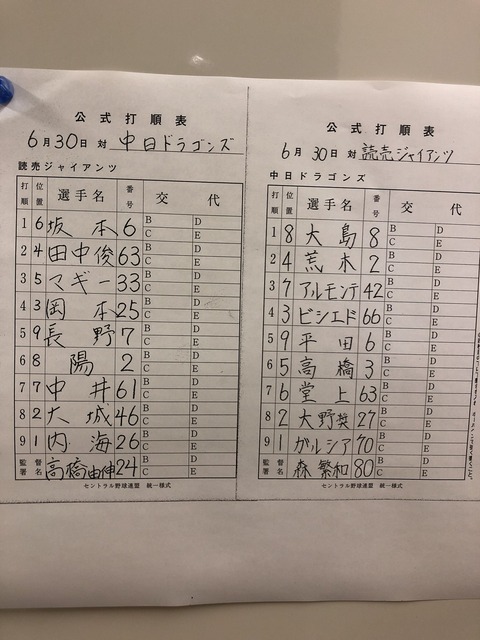 公式打順表
6月30日 対 中日ドラゴンズ
読売ジャイアンツ
打順 位置 選手名 番号 交代
1 6 坂本 6 B D C E
2 4 田中俊 63 B D C E
3 5 マギー 33 B D C E
4 3 岡本 25 B D C E
5 9 長野 7 B D C E
6 8 陽 2 B D C E
7 7 中井 61 B D C E
8 2 大城 46 B D C E
9 1 内海 26 B D C E
監督署名 高橋由伸 24 B D C E
セントラル野球連盟 統一様式
公式打順表
6月30日 対 読売ジャイアンツ
中日ドラゴンズ
打順 位置 選手名 番号 交代
1 8 大島 8 B D C E
2 4 荒木 2 B D C E
3 7 アルモンテ 42 B D C E
4 3 ビシエド 66 B D C E
5 9 平田 6 B D C E
6 5 高橋 3 B D C E
7 6 堂上 63 B D C E
8 2 大野奨 27 B D C E
9 1 ガルシア 70 B D C E
監督署名 森繁和 80 B D C E
セントラル野球連盟 統一様式